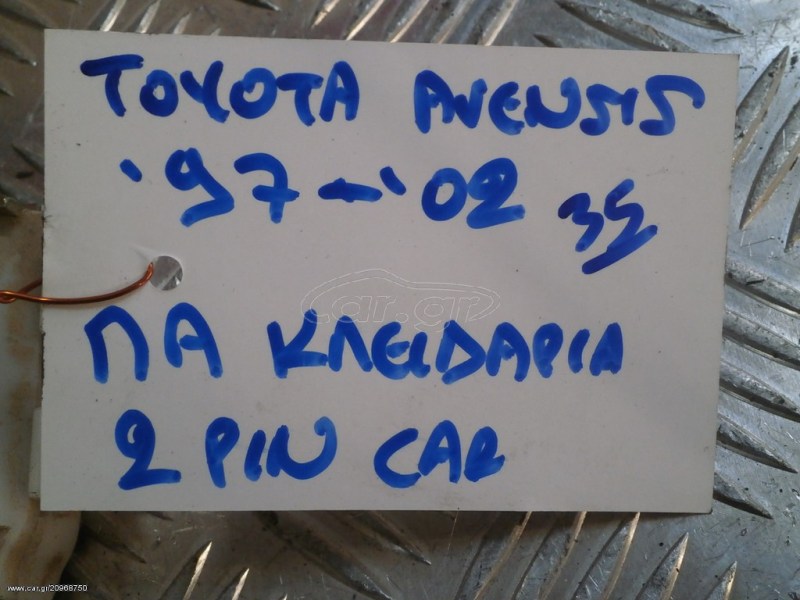 TOYOTA AVENSIS
'97-'02 35
car.gr
ΠΑ ΚΛΕΙΔΑΡΙΑ
2 PIN CAR
www.car.gr/20968750